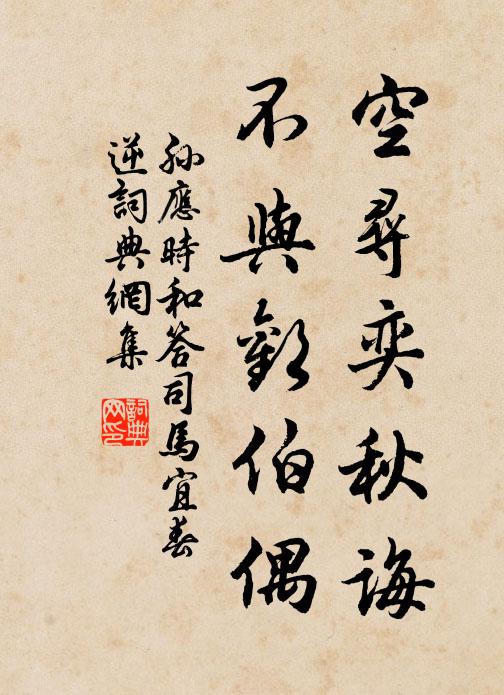 空尋奕秋誨
不與歡伯偶
孫應時和答司馬宜春
逆詞典網集
詞典网印